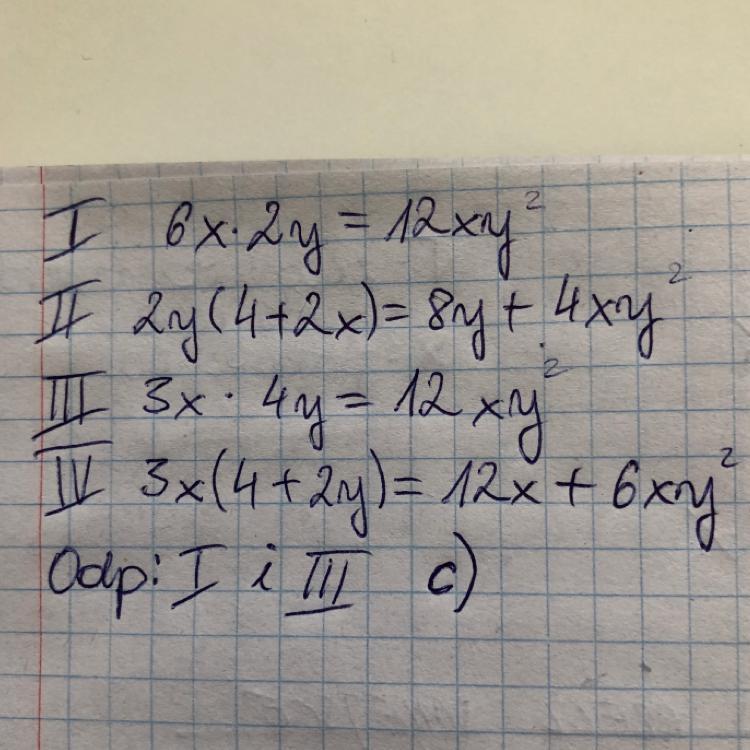 I 6x·2y = 12xy²
II 2y(4+2x) = 8y + 4xy²
III 3x · 4y = 12xy²
IV 3x(4+2y) = 12x + 6xy²
Odp: I i III c)